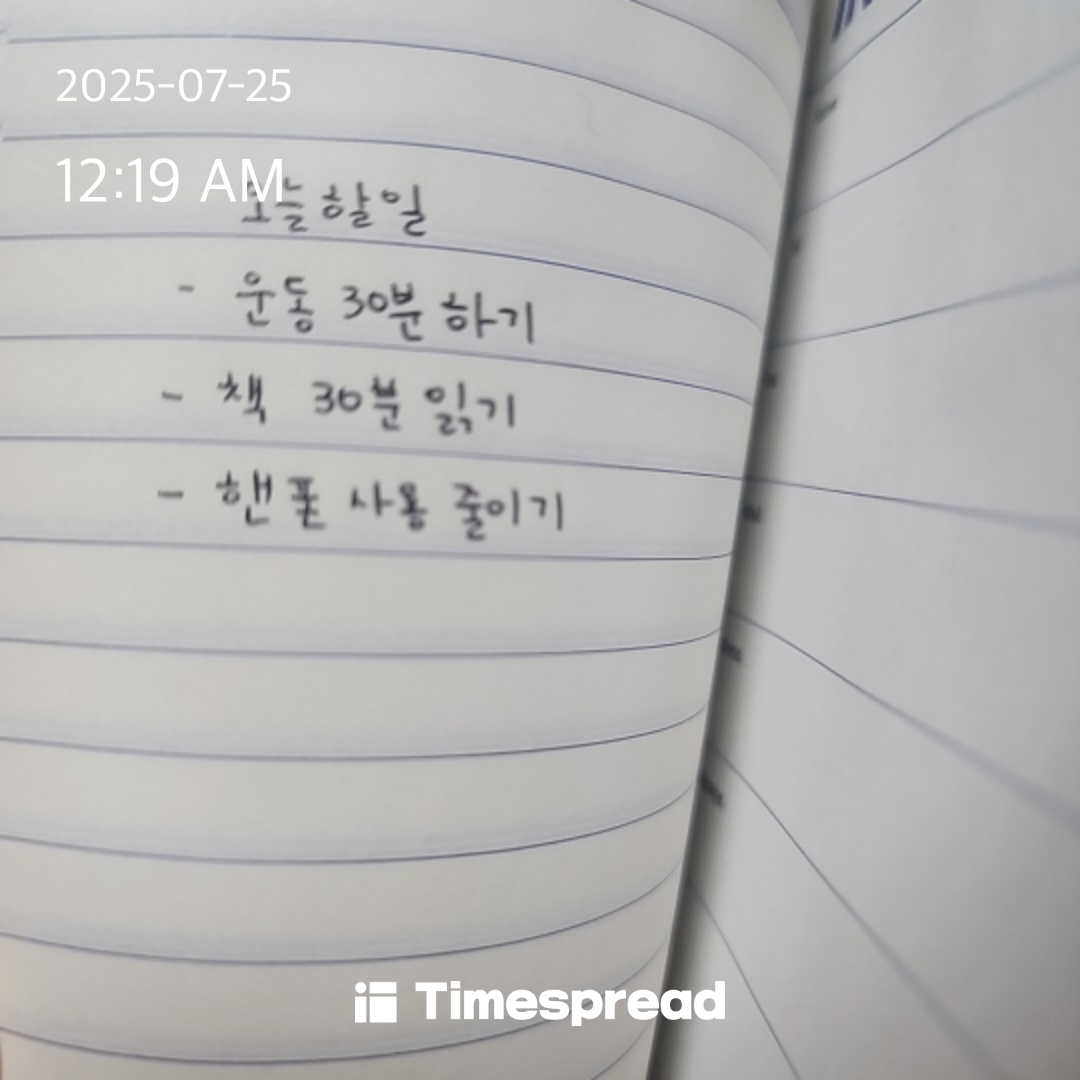 2025-07-25
12:19 AM
오늘 할일
- 운동 30분 하기
- 책 30분 읽기
- 핸폰 사용 줄이기
Timespread